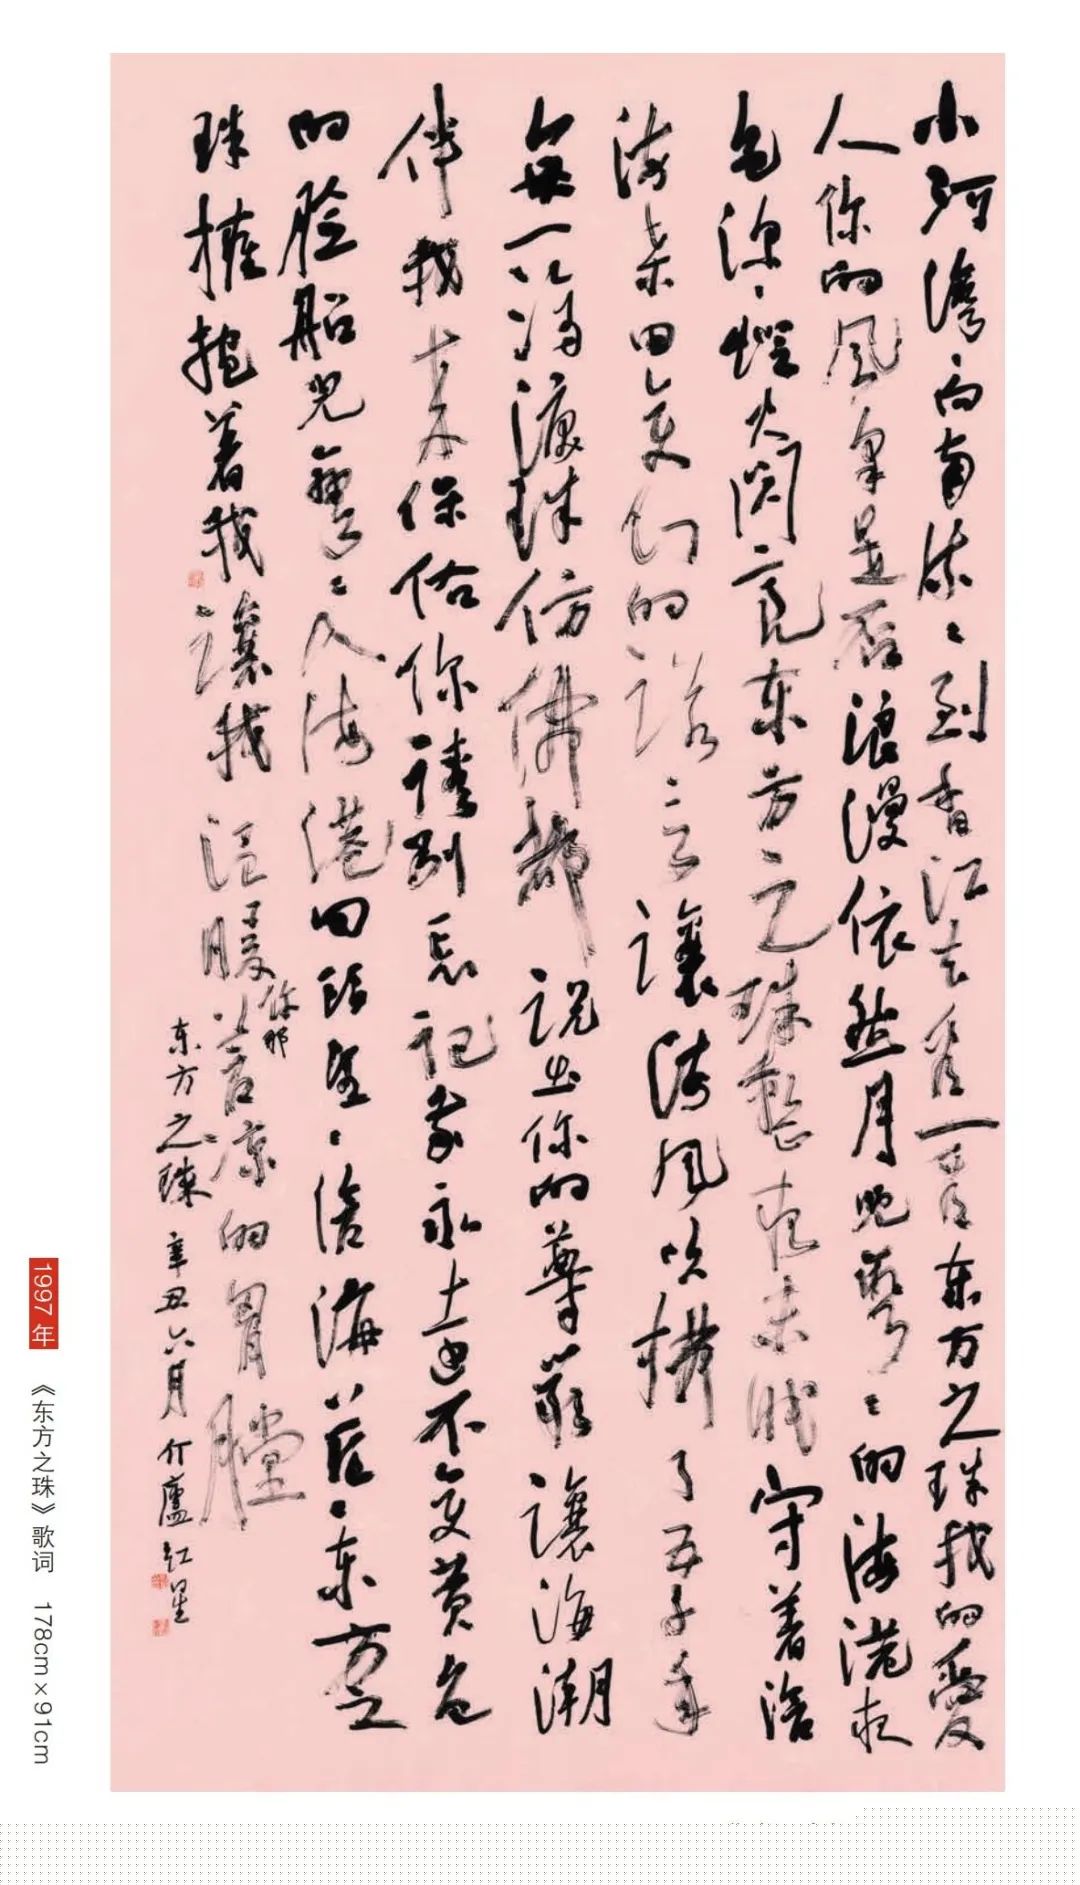 小河灣、向南流〻到香江去看一看东方之珠我的愛
人你的风采是否浪漫依然月兒彎〻的海港夜
色深〻燈火閃亮东方之珠整夜未眠守着滄
海桑田变幻的諾言讓海风吹拂了五千年
每一滴淚珠仿佛都說出你的尊嚴讓海潮
伴我来保佑你請别忘記我永遠不变黄色
的臉船兒彎〻入海港回頭望〻滄海茫〻东方之
珠擁抱着我讓我温暖你那蒼凉的胸膛
东方之珠 辛丑六月 竹廬 红星
1997年
《东方之珠》歌词 178cm×91cm